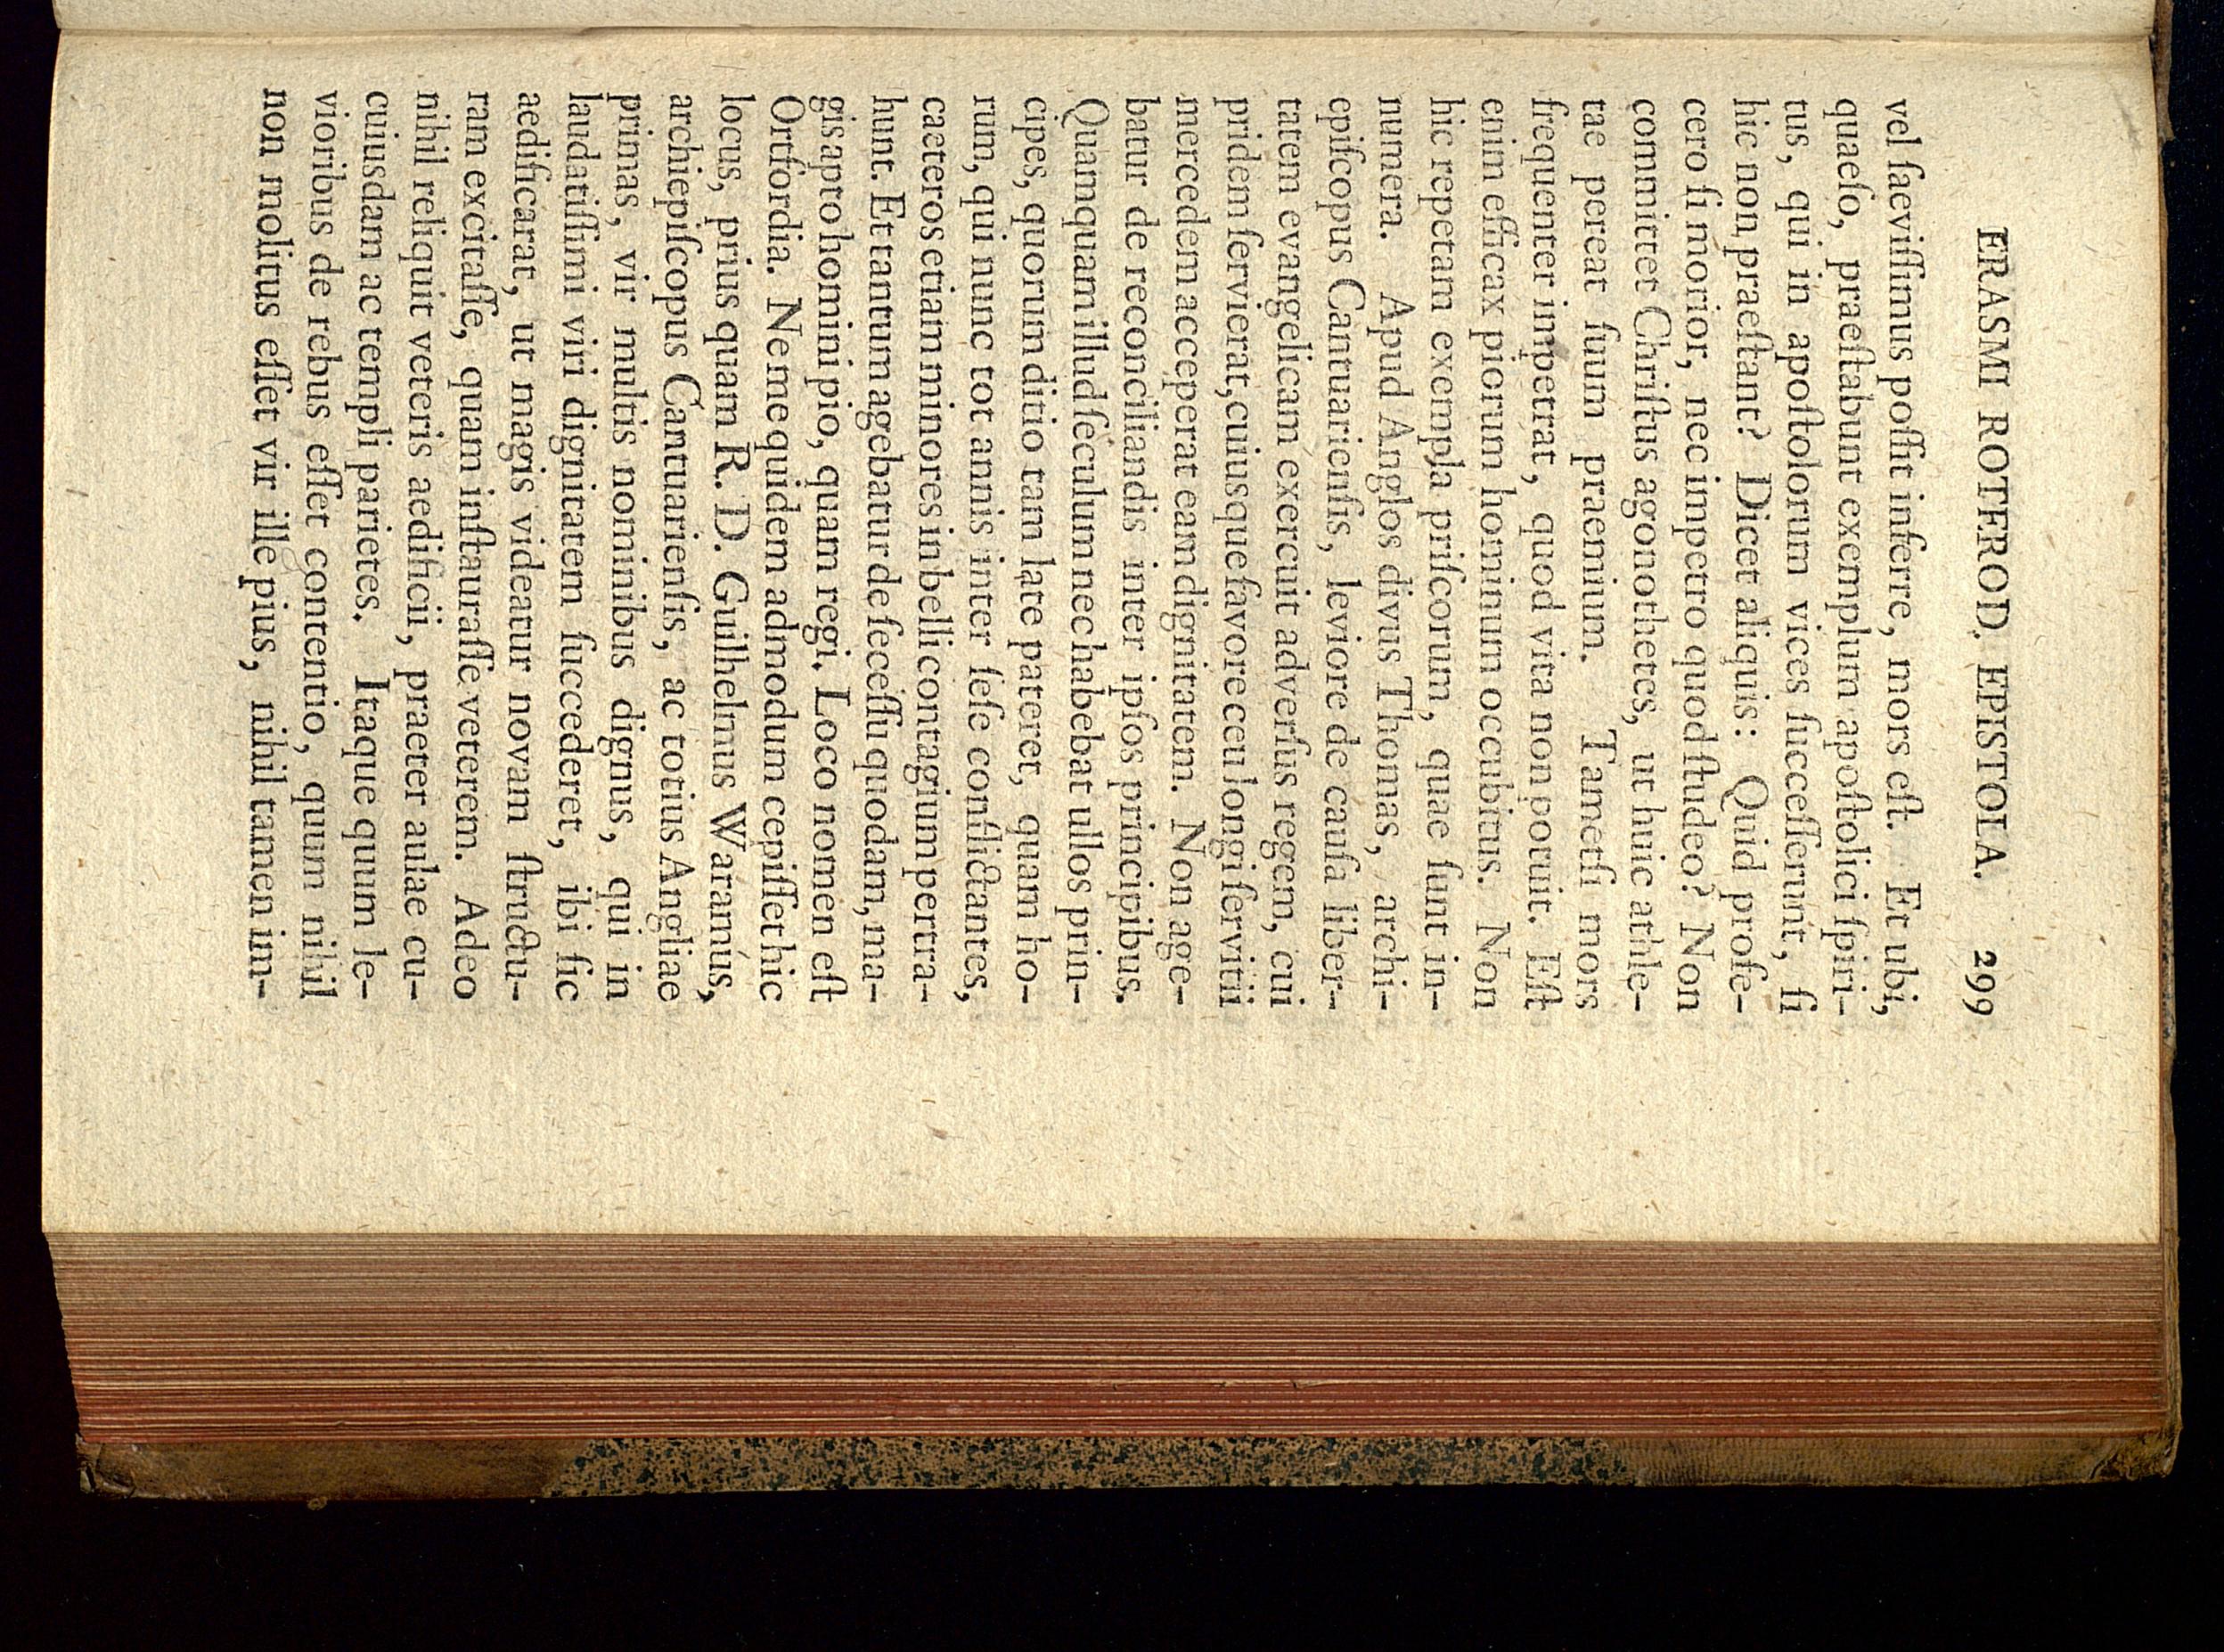 ERASMI ROTEROD. EPISTOLA. 299
vel ſaeviſſimus poſſit inferre, mors eſt. Et ubi,
quaeſo, praeſtabunt exemplum apoſtolici ſpiri-
tus, qui in apoſtolorum vices ſucceſſerunt, ſi
hic non praeſtant? Dicet aliquis: Quid profe-
cero ſi morior, nec impetro quod ſtudeo? Non
committet Chriſtus agonothetes, ut huic athle-
tae pereat ſuum praemium. Tametſi mors
frequenter impetrat, quod vita non potuit. Eſt
enim efficax piorum hominum occubitus. Non
hic repetam exempla priſcorum, quae ſunt in-
numera. Apud Anglos divus Thomas, archi-
epiſcopus Cantuarienſis, leviore de cauſa liber-
tatem evangelicam exercuit adverſus regem, cui
pridem ſervierat, cuiusque favore ceu longi ſervitii
mercedem acceperat eam dignitatem. Non age-
batur de reconciliandis inter ipſos principibus.
Quamquam illud ſeculum nec habebat ullos prin-
cipes, quorum ditio tam late pateret, quam ho-
rum, qui nunc tot annis inter ſeſe conflictantes,
caeteros etiam minores in belli contagium pertra-
hunt. Et tantum agebatur de ſeceſſu quodam, ma-
gis apto homini pio, quam regi. Loco nomen eſt
Ortfordia. Ne me quidem admodum cepiſſet hic
locus, prius quam R. D. Guilhelmus Waramus,
archiepiſcopus Cantuarienſis, ac totius Angliae
primas, vir multis nominibus dignus, qui in
laudatiſſimi viri dignitatem ſuccederet, ibi ſic
aedificarat, ut magis videatur novam ſtructu-
ram excitaſſe, quam inſtauraſſe veterem. Adeo
nihil reliquit veteris aedificii, praeter aulae cu-
cuiusdam ac templi parietes. Itaque quum le-
vioribus de rebus eſſet contentio, quum nihil
non molitus eſſet vir ille pius, nihil tamen im-